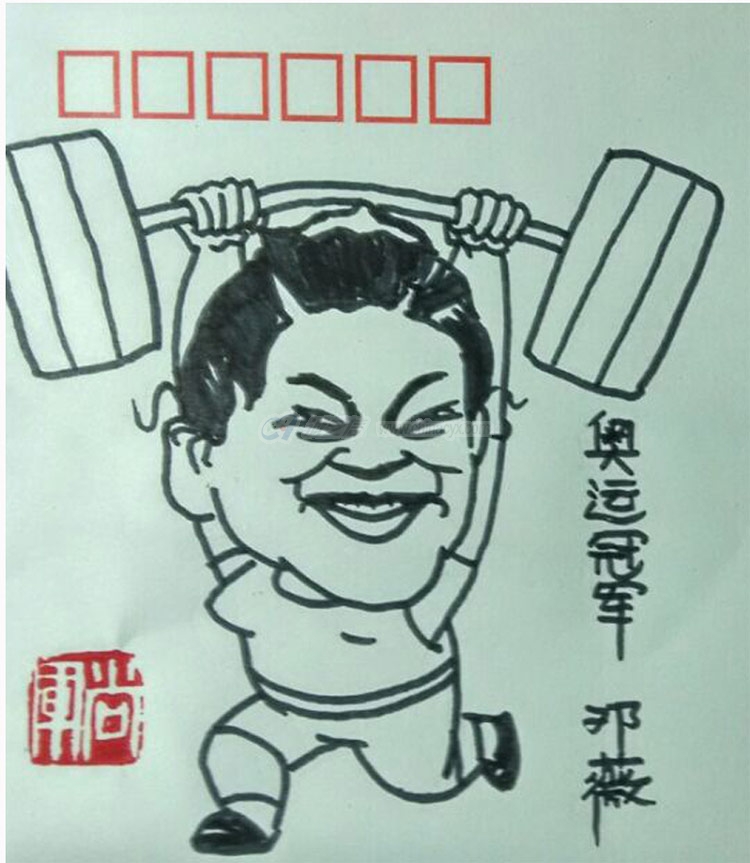 奥运冠军 邓薇